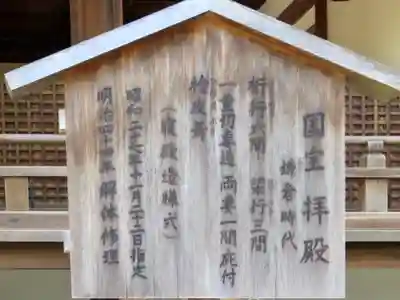 国宝 拝殿
鎌倉時代
桁行六間 梁行三間
一重切妻造 両妻一間庇付
桧皮葺
（寝殿造様式）
昭和二十七年十一月二十二日指定
明治四十年解体修理